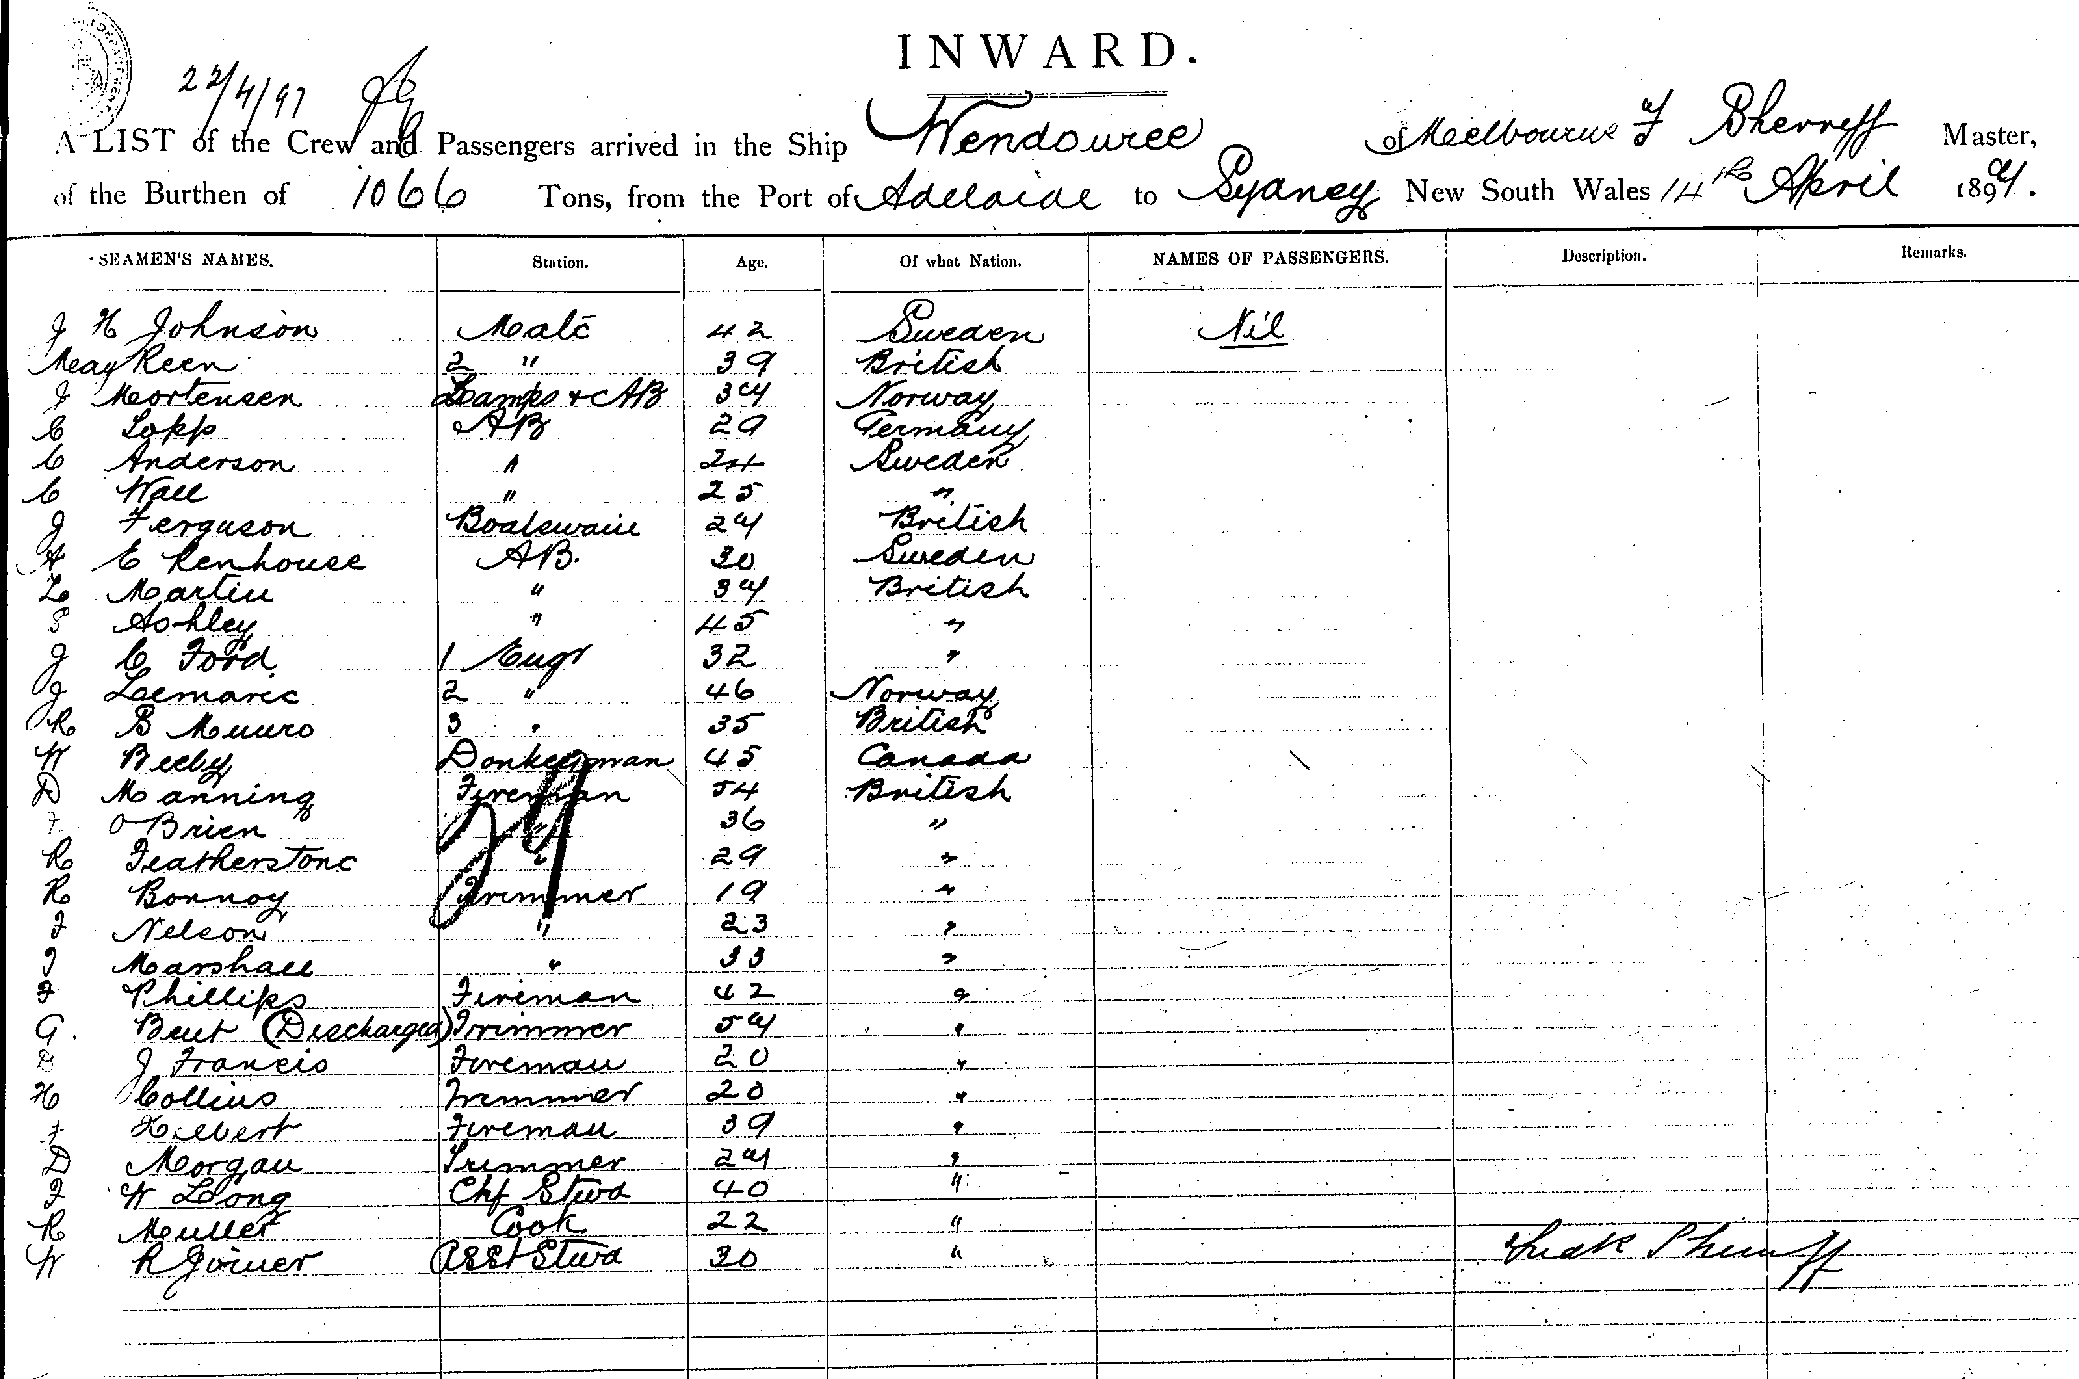 INWARD.
22/4/97
A LIST of the Crew and Passengers arrived in the Ship Wendouree of Melbourne F Sherreff Master,
of the Burthen of 1066 Tons, from the Port of Adelaide to Sydney New South Wales 14th April 1897.
SEAMEN'S NAMES. Station. Age. Of what Nation. NAMES OF PASSENGERS. Description. Remarks.
J H Johnson Mate 42 Sweden Nil
May Keen 2 " 39 British
J Mortensen Lamps & AB 34 Norway
C Lopp AB 29 Germany
C Anderson " 24 Sweden
C Wall " 25 "
J Ferguson Boatswain 24 British
A E Renhouse AB. 30 Sweden
L Martin " 34 British
S Ashley " 45 "
J C Ford 1 Engr 32 "
J Lemarie 2 " 46 Norway
R B Munro 3 " 35 British
W Beeby Donkeyman 45 Canada
D Manning Fireman 54 British
O'Brien " 36 "
R Featherstone " 29 "
R Bonnoy Trimmer 19 "
F Nelson " 23 "
J Marshall " 33 "
F Phillips Fireman 42 "
G. Bent (Discharged) Trimmer 54 "
J Francis Fireman 20 "
H Collins Trimmer 20 "
Fireman 39 "
D Morgan Trimmer 24 "
F W Long Chf Stwd 40 "
R Mullet Cook 22 "
W R Joiner Asst Stwd 30 "
29